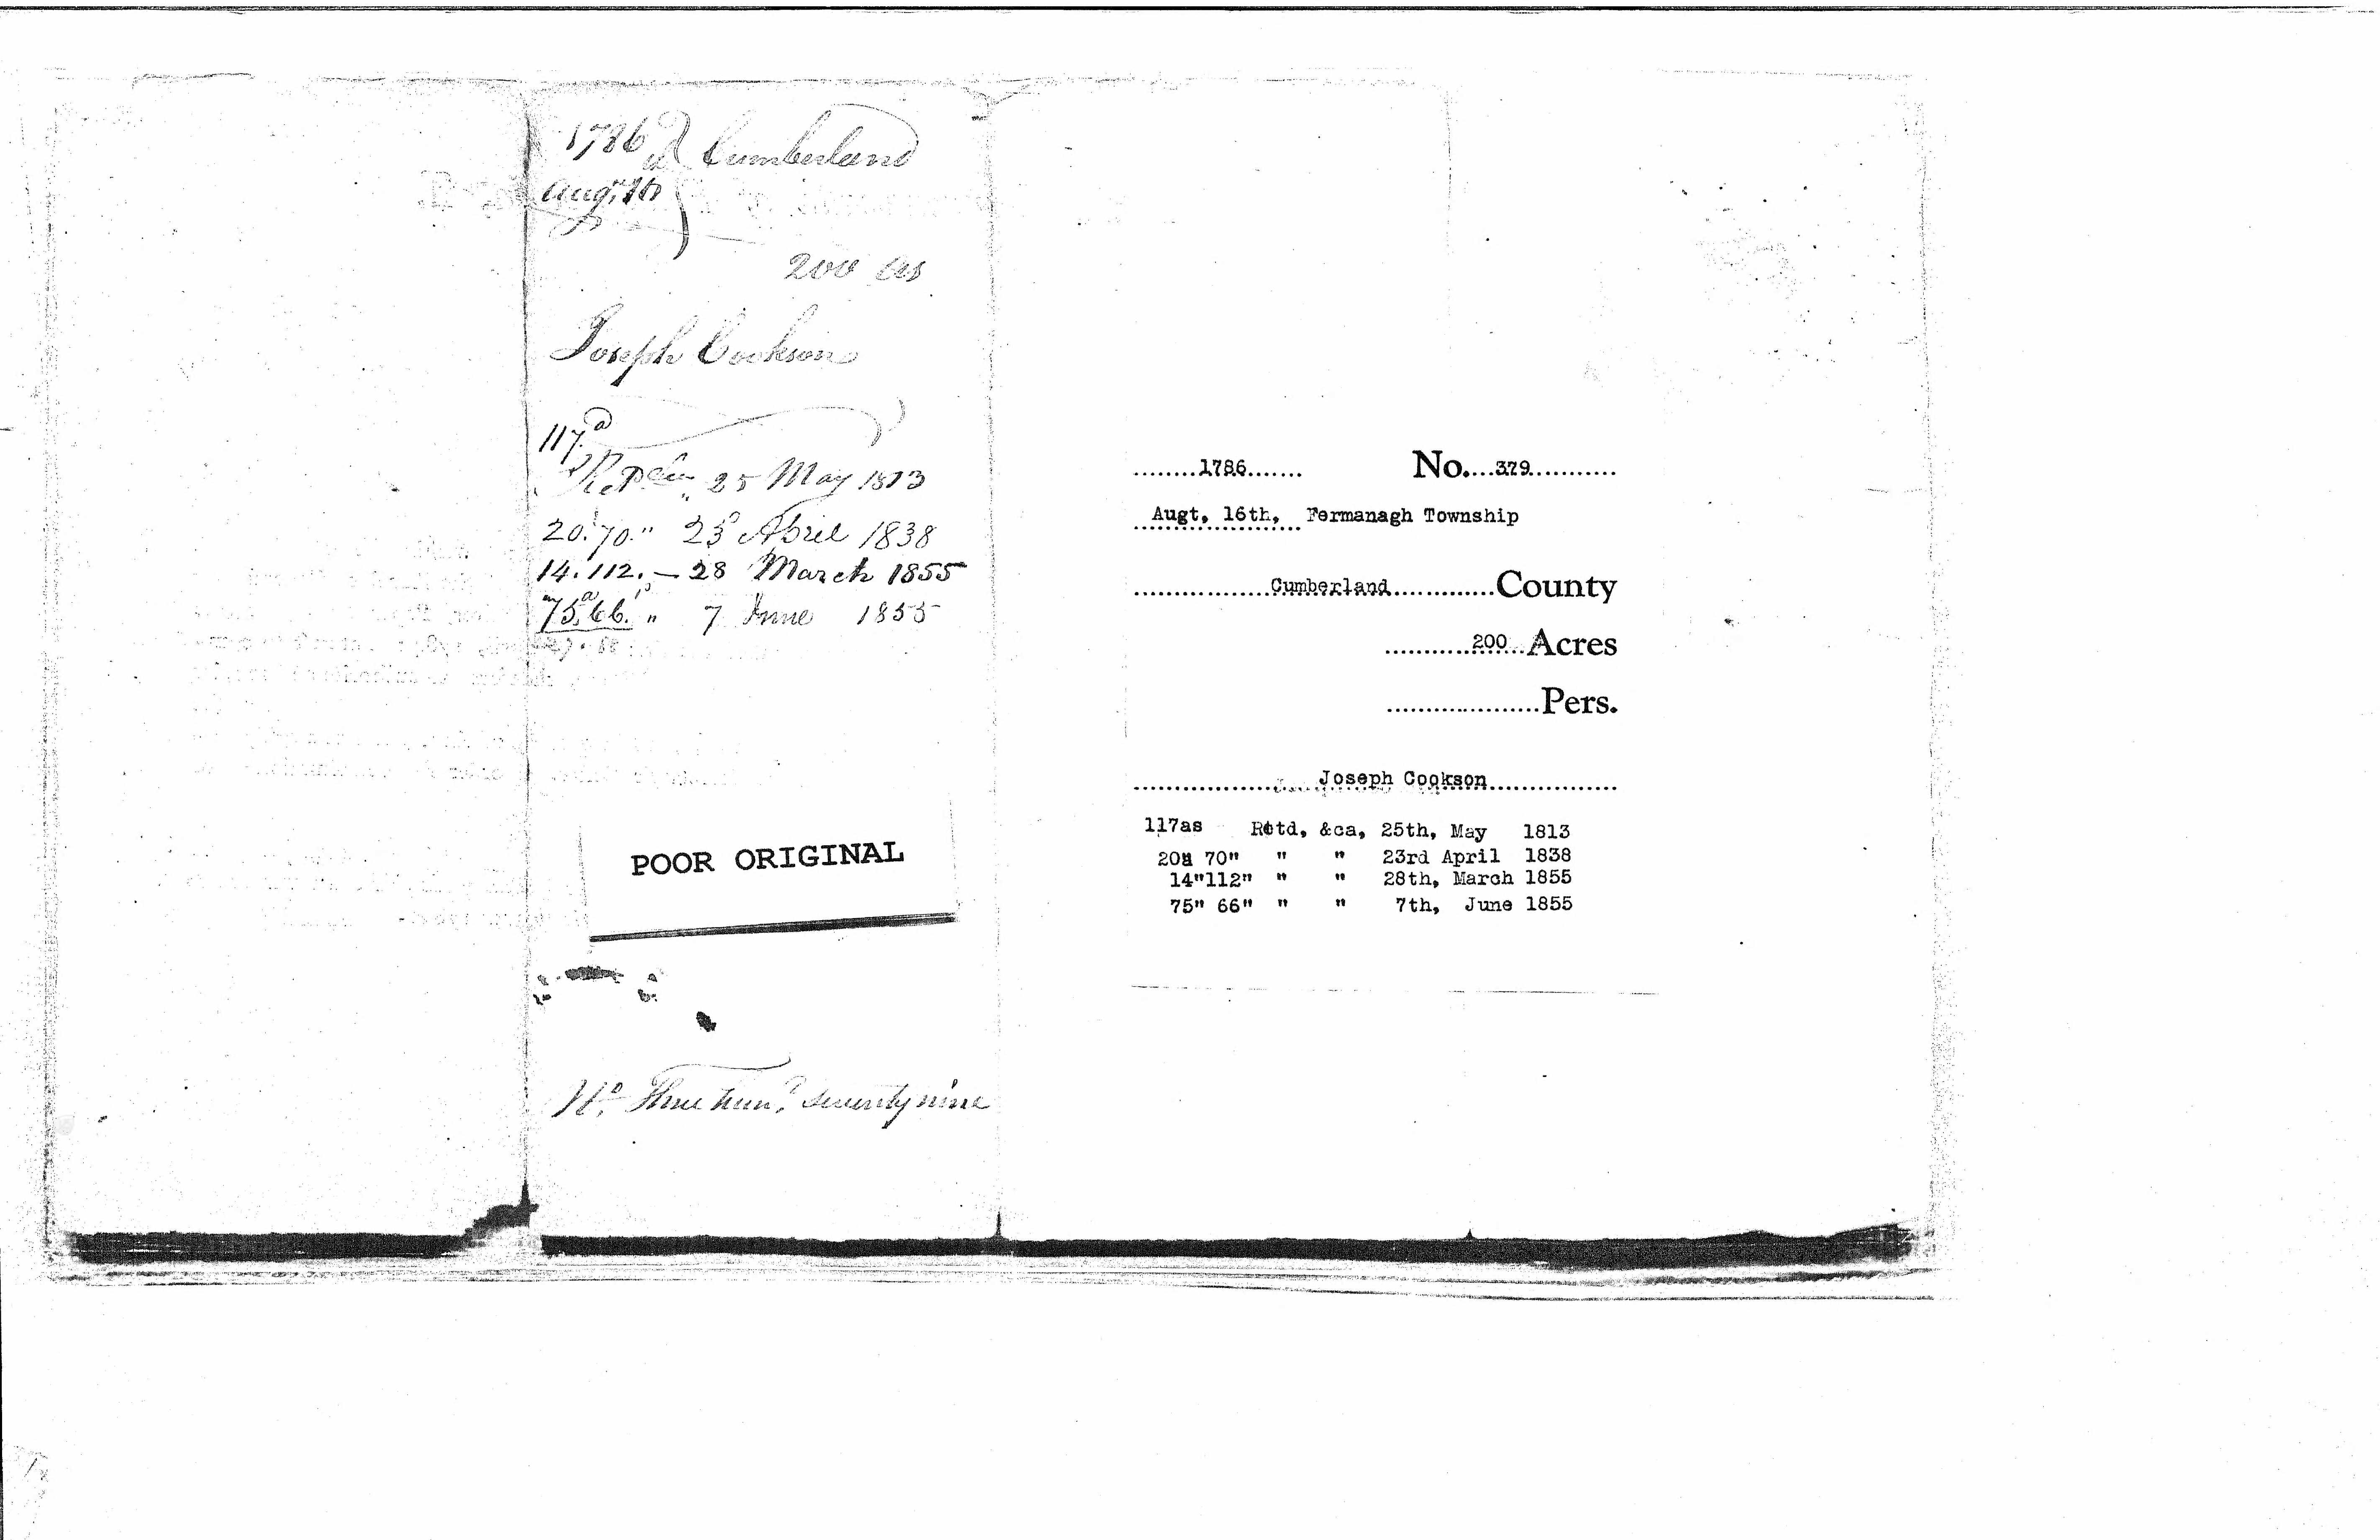 1786 } Cumberland
Augt. 16
200 as
Joseph Cookson
117.a
Retd &ca 25 May 1813
20. 70. " 23d April 1838
14. 112. – 28 March 1855
75a 66. " 7 June 1855
POOR ORIGINAL
No. Three hund. seventy nine
........1786....... No....379...........
Augt, 16th, Fermanagh Township
..................Cumberland..............County
............200...Acres
....................Pers.
..................Joseph Cookson.................
117as Retd, &ca, 25th, May 1813
20a 70" " " 23rd April 1838
14"112" " " 28th, March 1855
75" 66" " " 7th, June 1855